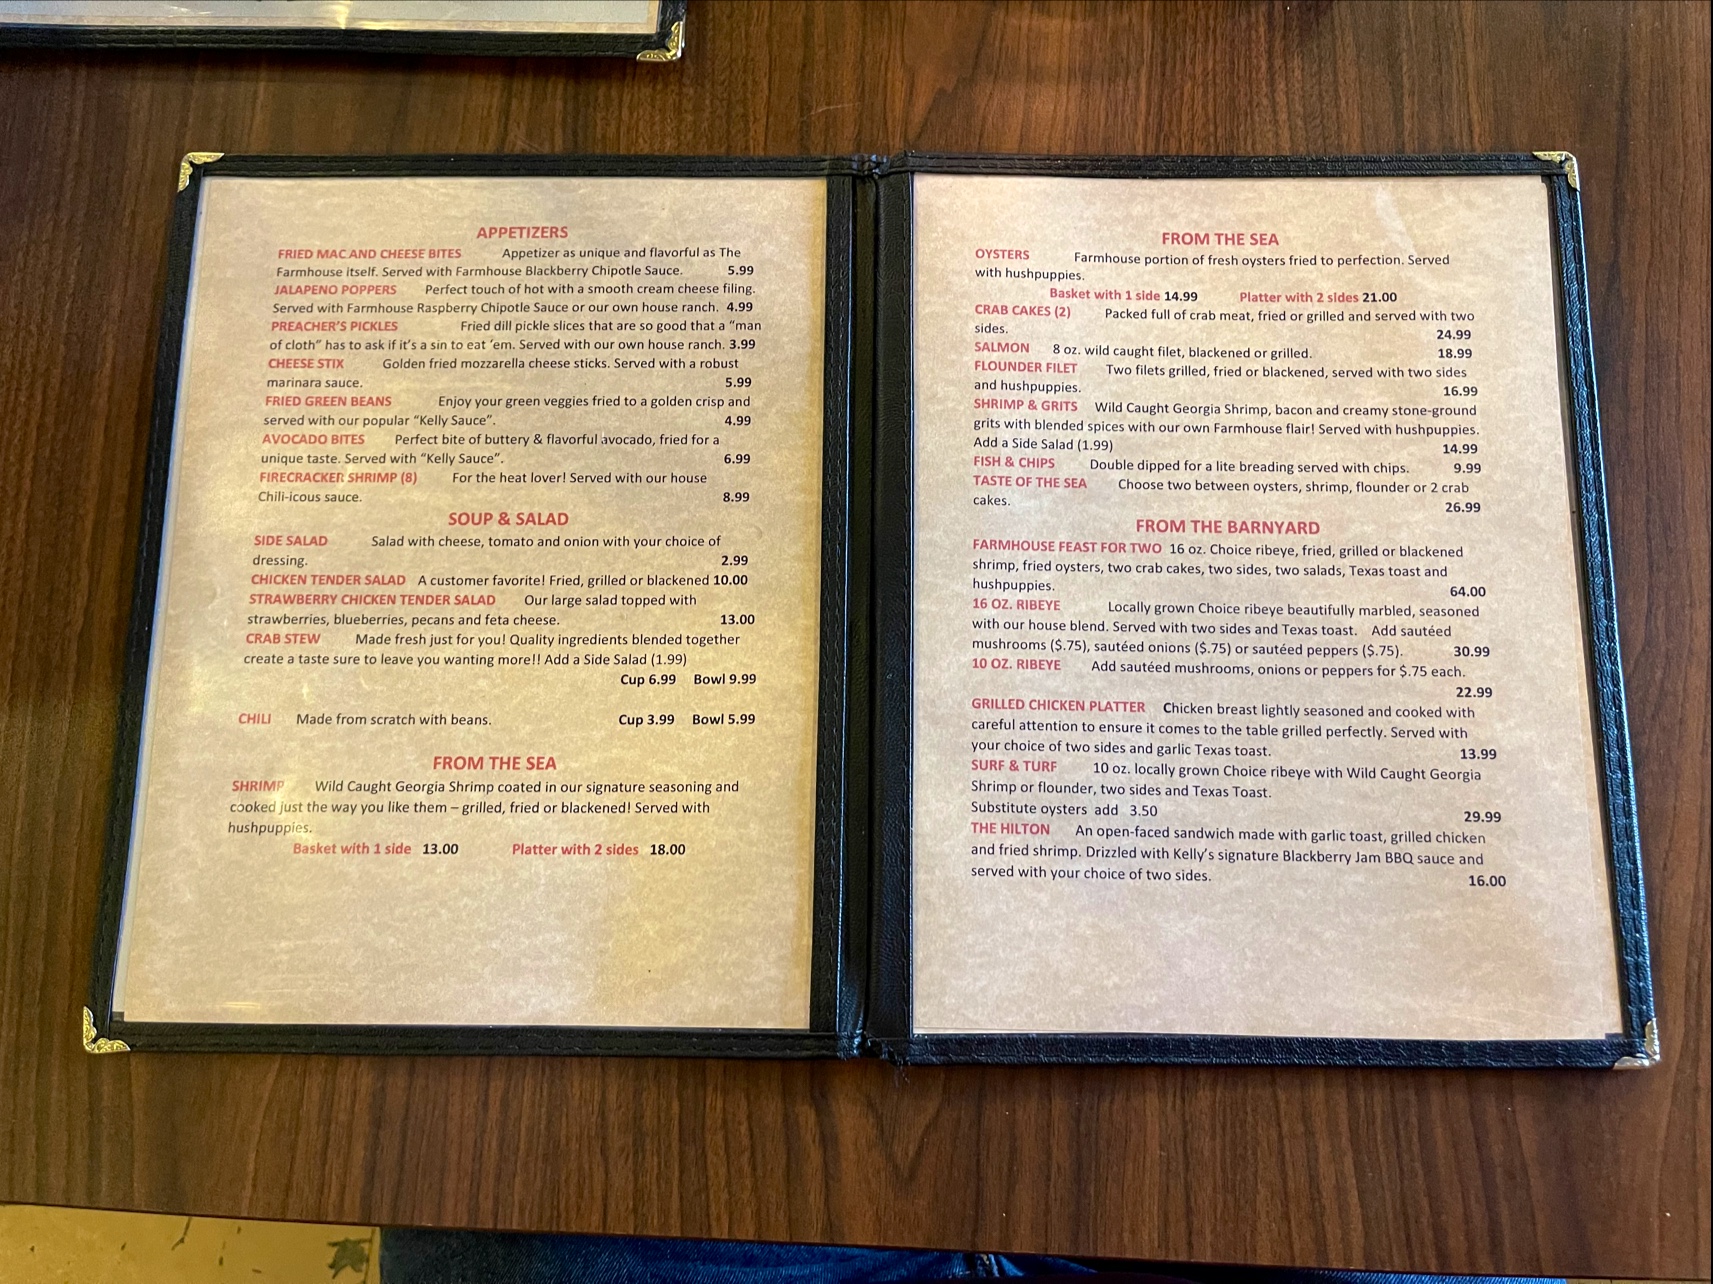 APPETIZERS
FRIED MAC AND CHEESE BITES Appetizer as unique and flavorful as The
Farmhouse itself. Served with Farmhouse Blackberry Chipotle Sauce. 5.99
JALAPENO POPPERS Perfect touch of hot with a smooth cream cheese filing.
Served with Farmhouse Raspberry Chipotle Sauce or our own house ranch. 4.99
PREACHER'S PICKLES Fried dill pickle slices that are so good that a "man
of cloth" has to ask if it's a sin to eat 'em. Served with our own house ranch. 3.99
CHEESE STIX Golden fried mozzarella cheese sticks. Served with a robust
marinara sauce. 5.99
FRIED GREEN BEANS Enjoy your green veggies fried to a golden crisp and
served with our popular "Kelly Sauce". 4.99
AVOCADO BITES Perfect bite of buttery & flavorful avocado, fried for a
unique taste. Served with "Kelly Sauce". 6.99
FIRECRACKER SHRIMP (8) For the heat lover! Served with our house
Chili-icous sauce. 8.99
SOUP & SALAD
SIDE SALAD Salad with cheese, tomato and onion with your choice of
dressing. 2.99
CHICKEN TENDER SALAD A customer favorite! Fried, grilled or blackened 10.00
STRAWBERRY CHICKEN TENDER SALAD Our large salad topped with
strawberries, blueberries, pecans and feta cheese. 13.00
CRAB STEW Made fresh just for you! Quality ingredients blended together
create a taste sure to leave you wanting more!! Add a Side Salad (1.99)
Cup 6.99 Bowl 9.99
CHILI Made from scratch with beans. Cup 3.99 Bowl 5.99
FROM THE SEA
SHRIMP Wild Caught Georgia Shrimp coated in our signature seasoning and
cooked just the way you like them – grilled, fried or blackened! Served with
hushpuppies.
Basket with 1 side 13.00 Platter with 2 sides 18.00
FROM THE SEA
OYSTERS Farmhouse portion of fresh oysters fried to perfection. Served
with hushpuppies.
Basket with 1 side 14.99 Platter with 2 sides 21.00
CRAB CAKES (2) Packed full of crab meat, fried or grilled and served with two
sides. 24.99
SALMON 8 oz. wild caught filet, blackened or grilled. 18.99
FLOUNDER FILET Two filets grilled, fried or blackened, served with two sides
and hushpuppies. 16.99
SHRIMP & GRITS Wild Caught Georgia Shrimp, bacon and creamy stone-ground
grits with blended spices with our own Farmhouse flair! Served with hushpuppies.
Add a Side Salad (1.99) 14.99
FISH & CHIPS Double dipped for a lite breading served with chips. 9.99
TASTE OF THE SEA Choose two between oysters, shrimp, flounder or 2 crab
cakes. 26.99
FROM THE BARNYARD
FARMHOUSE FEAST FOR TWO 16 oz. Choice ribeye, fried, grilled or blackened
shrimp, fried oysters, two crab cakes, two sides, two salads, Texas toast and
hushpuppies. 64.00
16 OZ. RIBEYE Locally grown Choice ribeye beautifully marbled, seasoned
with our house blend. Served with two sides and Texas toast. Add sautéed
mushrooms ($.75), sautéed onions ($.75) or sautéed peppers ($.75). 30.99
10 OZ. RIBEYE Add sautéed mushrooms, onions or peppers for $.75 each.
22.99
GRILLED CHICKEN PLATTER Chicken breast lightly seasoned and cooked with
careful attention to ensure it comes to the table grilled perfectly. Served with
your choice of two sides and garlic Texas toast. 13.99
SURF & TURF 10 oz. locally grown Choice ribeye with Wild Caught Georgia
Shrimp or flounder, two sides and Texas Toast.
Substitute oysters add 3.50 29.99
THE HILTON An open-faced sandwich made with garlic toast, grilled chicken
and fried shrimp. Drizzled with Kelly's signature Blackberry Jam BBQ sauce and
served with your choice of two sides. 16.00